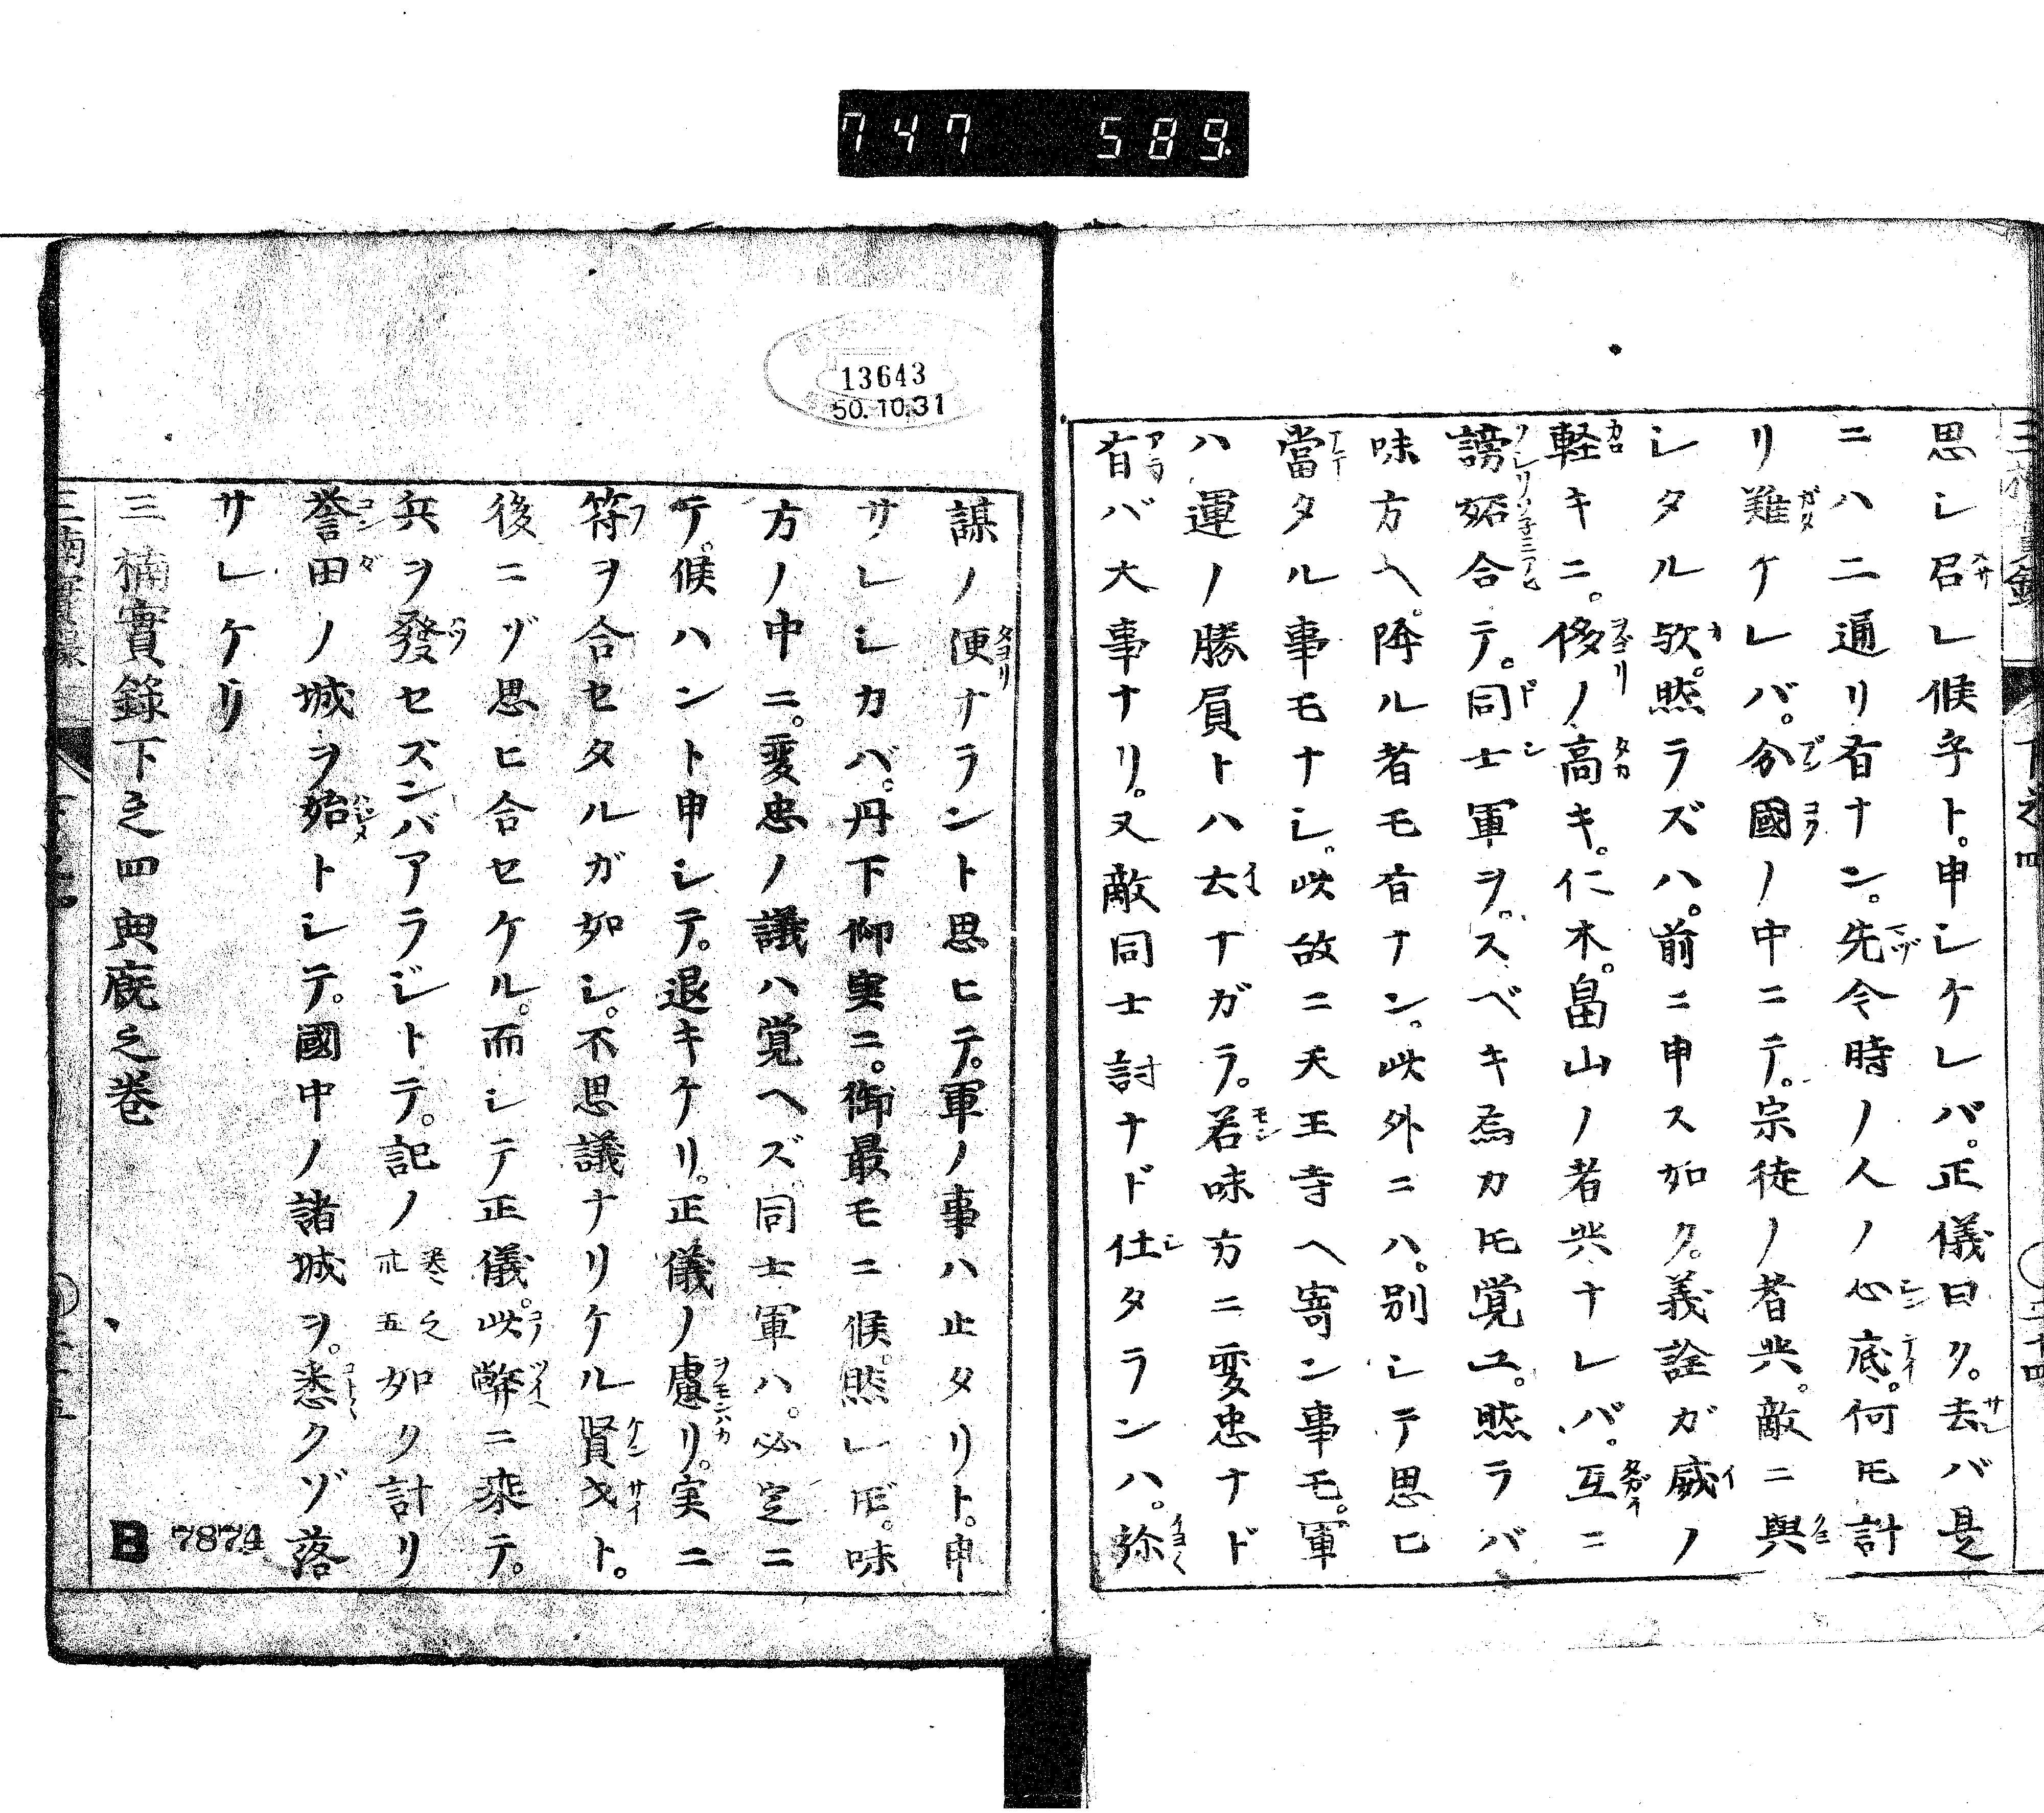 747 589.
思シ召レ候乎ト。申シケレバ。正儀曰ク。去バ是
ニハ二通リ有ナン。先今時ノ人ノ心底。何𪜈計
リ難ケレバ。分國ノ中ニテ。宗徒ノ者共。敵ニ與
シタル歟。然ラズハ。前ニ申ス如ク。義詮ガ威ノ
軽キニ。侈ノ高キ。仁木。畠山ノ者共ナレバ。互ニ
謗妬合テ。同士軍ヲ。スベキ為カ𪜈覚ユ。然ラバ
味方ヘ。降ル者モ有ナン。此外ニハ。別シテ思ヒ
當タル事モナシ。此故ニ天王寺ヘ寄ン事モ。軍
ハ運ノ勝負トハ云ナガラ。若味方ニ変忠ナド
有バ大事ナリ。又敵同士討ナド仕タランハ。弥
13643
50.10.31
謀ノ便ナラント思ヒテ。軍ノ事ハ止タリト。申
サレシカバ。丹下仰実ニ。御最モニ候。然レ𪜈。味
方ノ中ニ。変忠ノ議ハ覚ヘズ同士軍ハ。必定ニ
テ。候ハント申シテ。退キケリ。正儀ノ慮リ。実ニ
符ヲ合セタルガ如シ。不思議ナリケル賢才ト。
後ニゾ思ヒ合セケル。而シテ正儀。此弊ニ乘テ。
兵ヲ發セズンバアラジトテ。記ノ巻之卅五如ク計リ
誉田ノ城ヲ始トシテ。國中ノ諸城ヲ。悉クゾ落
サレケリ
三楠實錄下之四與廐之巻
B 7874